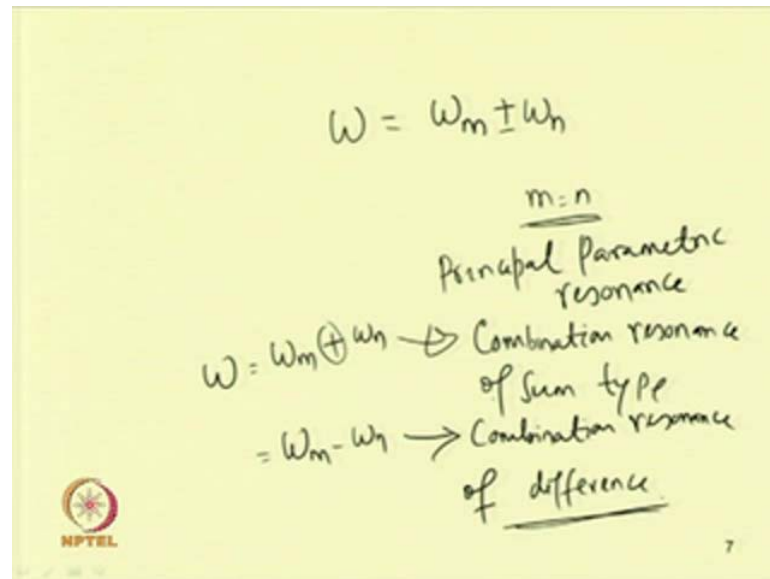 ω = ωm ± ωn
m = n
Principal Parametric
resonance
ω = ωm + ωn → Combination resonance
of sum type
= ωm - ωn → Combination resonance
of difference
NPTEL
7